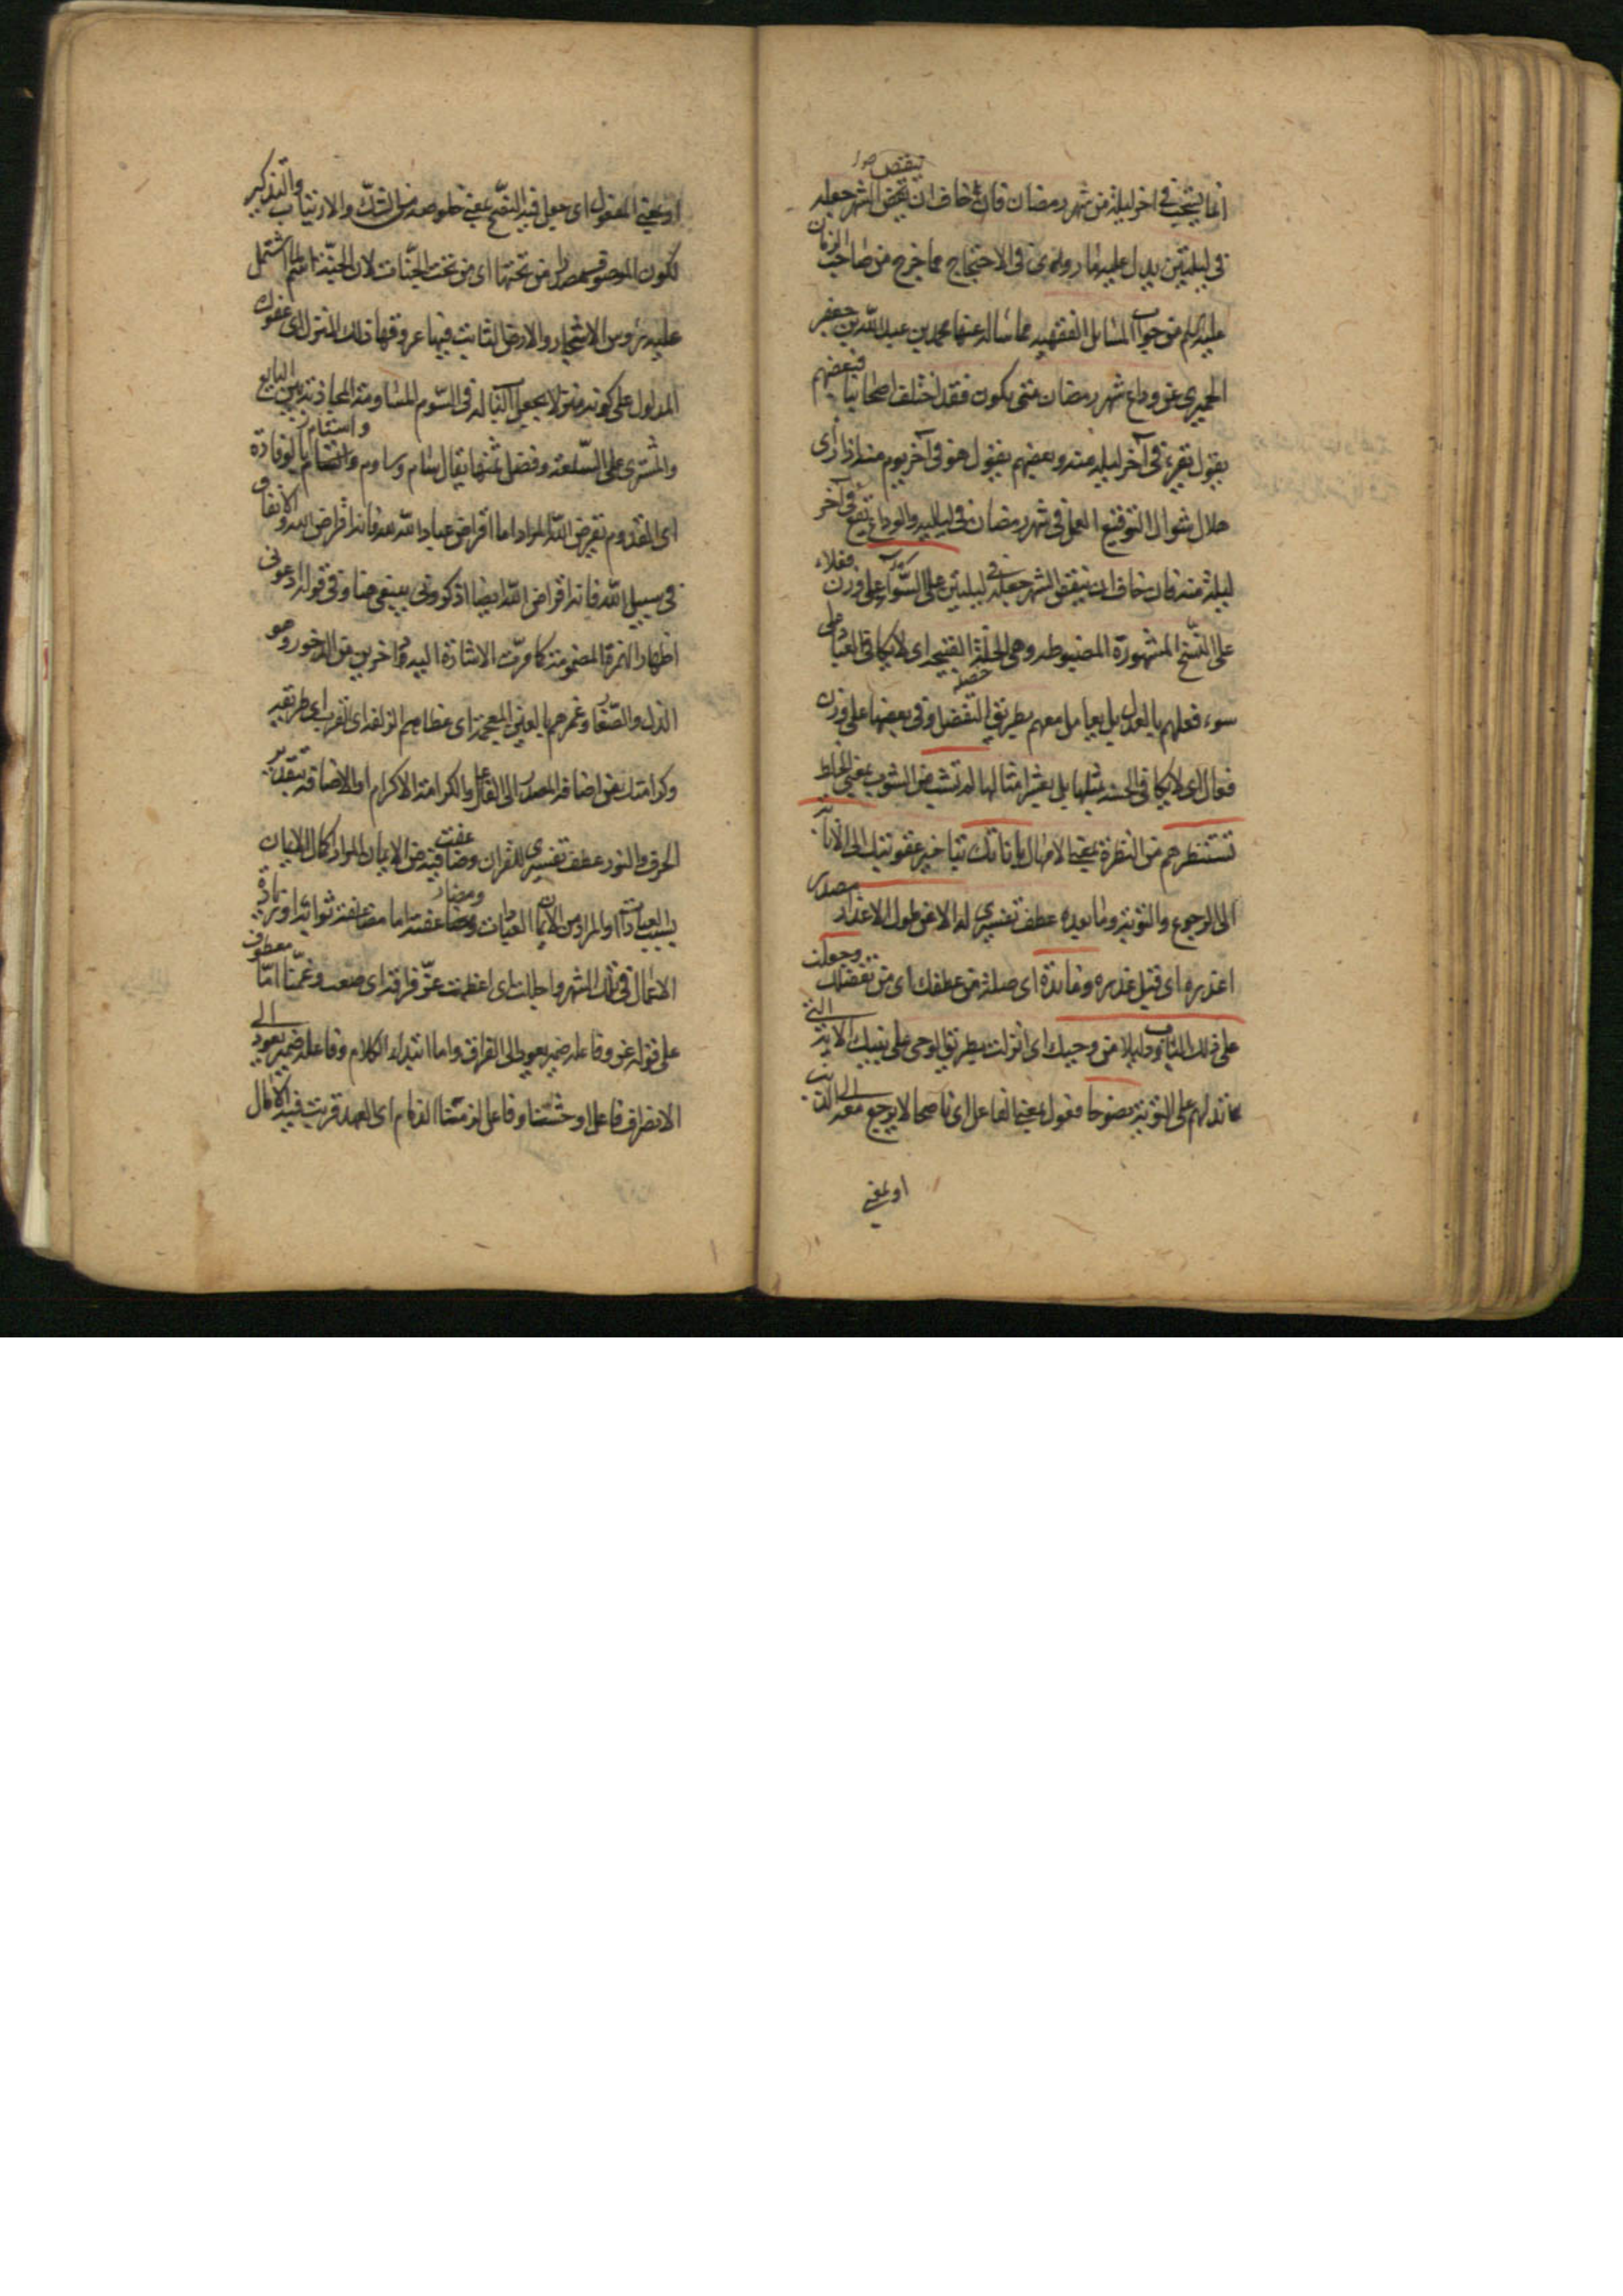 ينقص صور
انما يستحب في اخر ليلة من شهر رمضان فان خاف ان ينقص الشهر جعله
في ليلتين يدل عليه ما روى في الاحتجاج مما خرج من صاحب الزمان
عليه السلام من جواب المسائل الفقهيه مما ساله عنها محمد بن عبد الله بن جعفر
الحميري عن وداع شهر رمضان متى يكون فقد اختلف اصحابنا فبعضهم
يقول يقرء في آخر ليله منه وبعضهم يقول هو في آخر يوم منه اذا راى
هلال شوال التوقيع العمل في شهر رمضان في لياليه والوداع يقع في آخر
ليلة منه فان خاف ان ينقص الشهر جعله في ليلتين على السوآء على وزن فعلاء
على النسخ المشهورة المضبوطه وهى الخلة القبيحه اى لا يكافى العباد على
سوء فعلهم بالعدل بل يعامل معهم بطريق التفضل وفى بعضها على وزن
فعال اى لا يكافى الحسنه بمثلها بل بعشر امثالها لم تشب من الشوب بمعنى الخلط
تستنظرهم من النظرة بمعنى الامهال باناتك بتاخير عقوبتك الى الانابة
الى الرجوع والتوبة وما بعده عطف تفسيرى له الا عن طول الاعذار مصدر
اعذره اى قبل عذره وعائدة اى صلة من عطفك اى من تفضلك وجعلت
على ذلك الباب دليلا من وحيك اى انزلت بطريق الوحى على نبيك الاية التى
تدلهم على التوبة نصوحا فعول بمعنى الفاعل اى ناصحا لا يرجع معه الى الذنب
او بمعنى
او بمعنى المفعول اى جعل فيه النصح بمعنى خلوصه من الشك والارتياب والتذكير
لكون الموصوف مصدرا من تحتها اى من تحت الجنات لان الجنة اسم لما اشتمل
عليه رؤس الاشجار والارض الثابت فيها عروقها ذلك المنزل اى عفوك
المدلول على كونه منزلا بجعل الباب له في السوم المساومة المجاذبة بين البايع
والمشترى على السلعة وفصل ثمنها يقال سام وساوم واستام بالوفادة
اى القدوم يقرض الله المراد اما اقراض عباد الله فانه اقراض الله او الانفاق
فى سبيل الله فانه اقراض الله ايضا اذكرونى ينبغى هنا وفى قوله ادعونى
اظهار الهمزة المضمومة كما مرت الاشارة اليه داخرين من الدخور وهو
الذل والصغار وغمرهم بالغين المعجمة اى غطاهم الزلفه اى القرب اى طريقه
وكرامتك من اضافة المصدر الى الفاعل والكرامة الاكرام او الاضافه بتقدير
الحرف والنور عطف تفسيرى للقران وضاعفت فيه من الايمان المراد كمال الايمان
بسبب العبادات او المراد من الايمان العبادات ومضاعفته اما مضاعفة ثوابه او زيادة
الاعمال فى ذلك الشهر واجللت اى اعظمت عز فراقه اى صعب وغمنا اما معطوف
على قوله عز وفاعله ضمير يعود الى الفراق واما ابتداء الكلام وفاعله ضمير يعود الى
الانصراف فاعل اوحشنا وفاعل لزمنا الذمام اى العهد قربت فيه الآمال